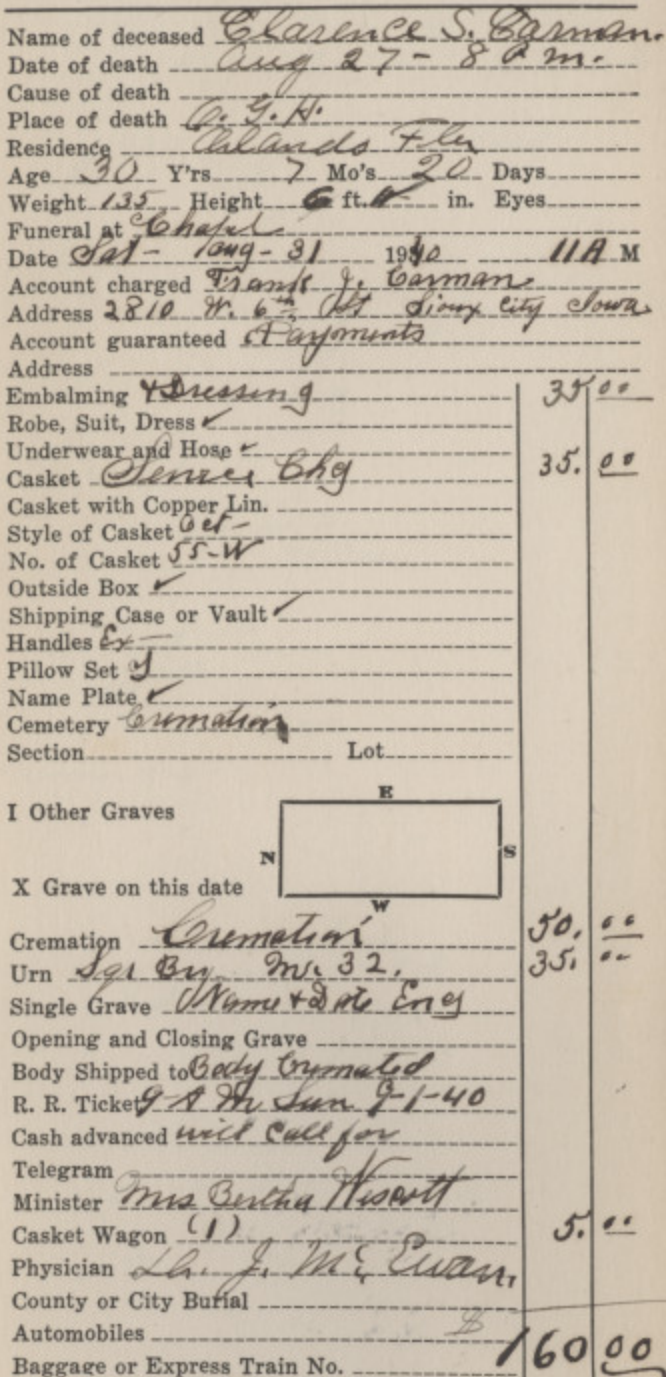 Name of deceased Clarence S. Carman.
Date of death Aug 27 - 8 P m.
Cause of death
Place of death O. G. H.
Residence Orlando Fla
Age 30 Y'rs 7 Mo's 20 Days
Weight 135 Height 6 ft. in. Eyes
Funeral at Chapel
Date Sat - Aug - 31 1940 11 A M
Account charged Frank J. Carman
Address 2810 W. 6th St Sioux City Iowa
Account guaranteed Payments
Address
Embalming & Dressing 35 00
Robe, Suit, Dress ✓
Underwear and Hose ✓
Casket Service Chg 35. 00
Casket with Copper Lin.
Style of Casket Oct -
No. of Casket 55-W
Outside Box ✓
Shipping Case or Vault ✓
Handles Ex -
Pillow Set
Name Plate ✓
Cemetery Cremation
Section Lot
E
I Other Graves
N S
X Grave on this date
W
Cremation Cremation 50. 00
Urn Sqr Bz 32. 35. 00
Single Grave Name & Date Eng
Opening and Closing Grave
Body Shipped to Body Cremated
R. R. Ticket 9 A M Sun 9-1-40
Cash advanced will call for
Telegram
Minister Mrs Bertha Wescott
Casket Wagon (1) 5. 00
Physician Dr. J. McEwan
County or City Burial
Automobiles $ 160 00
Baggage or Express Train No.